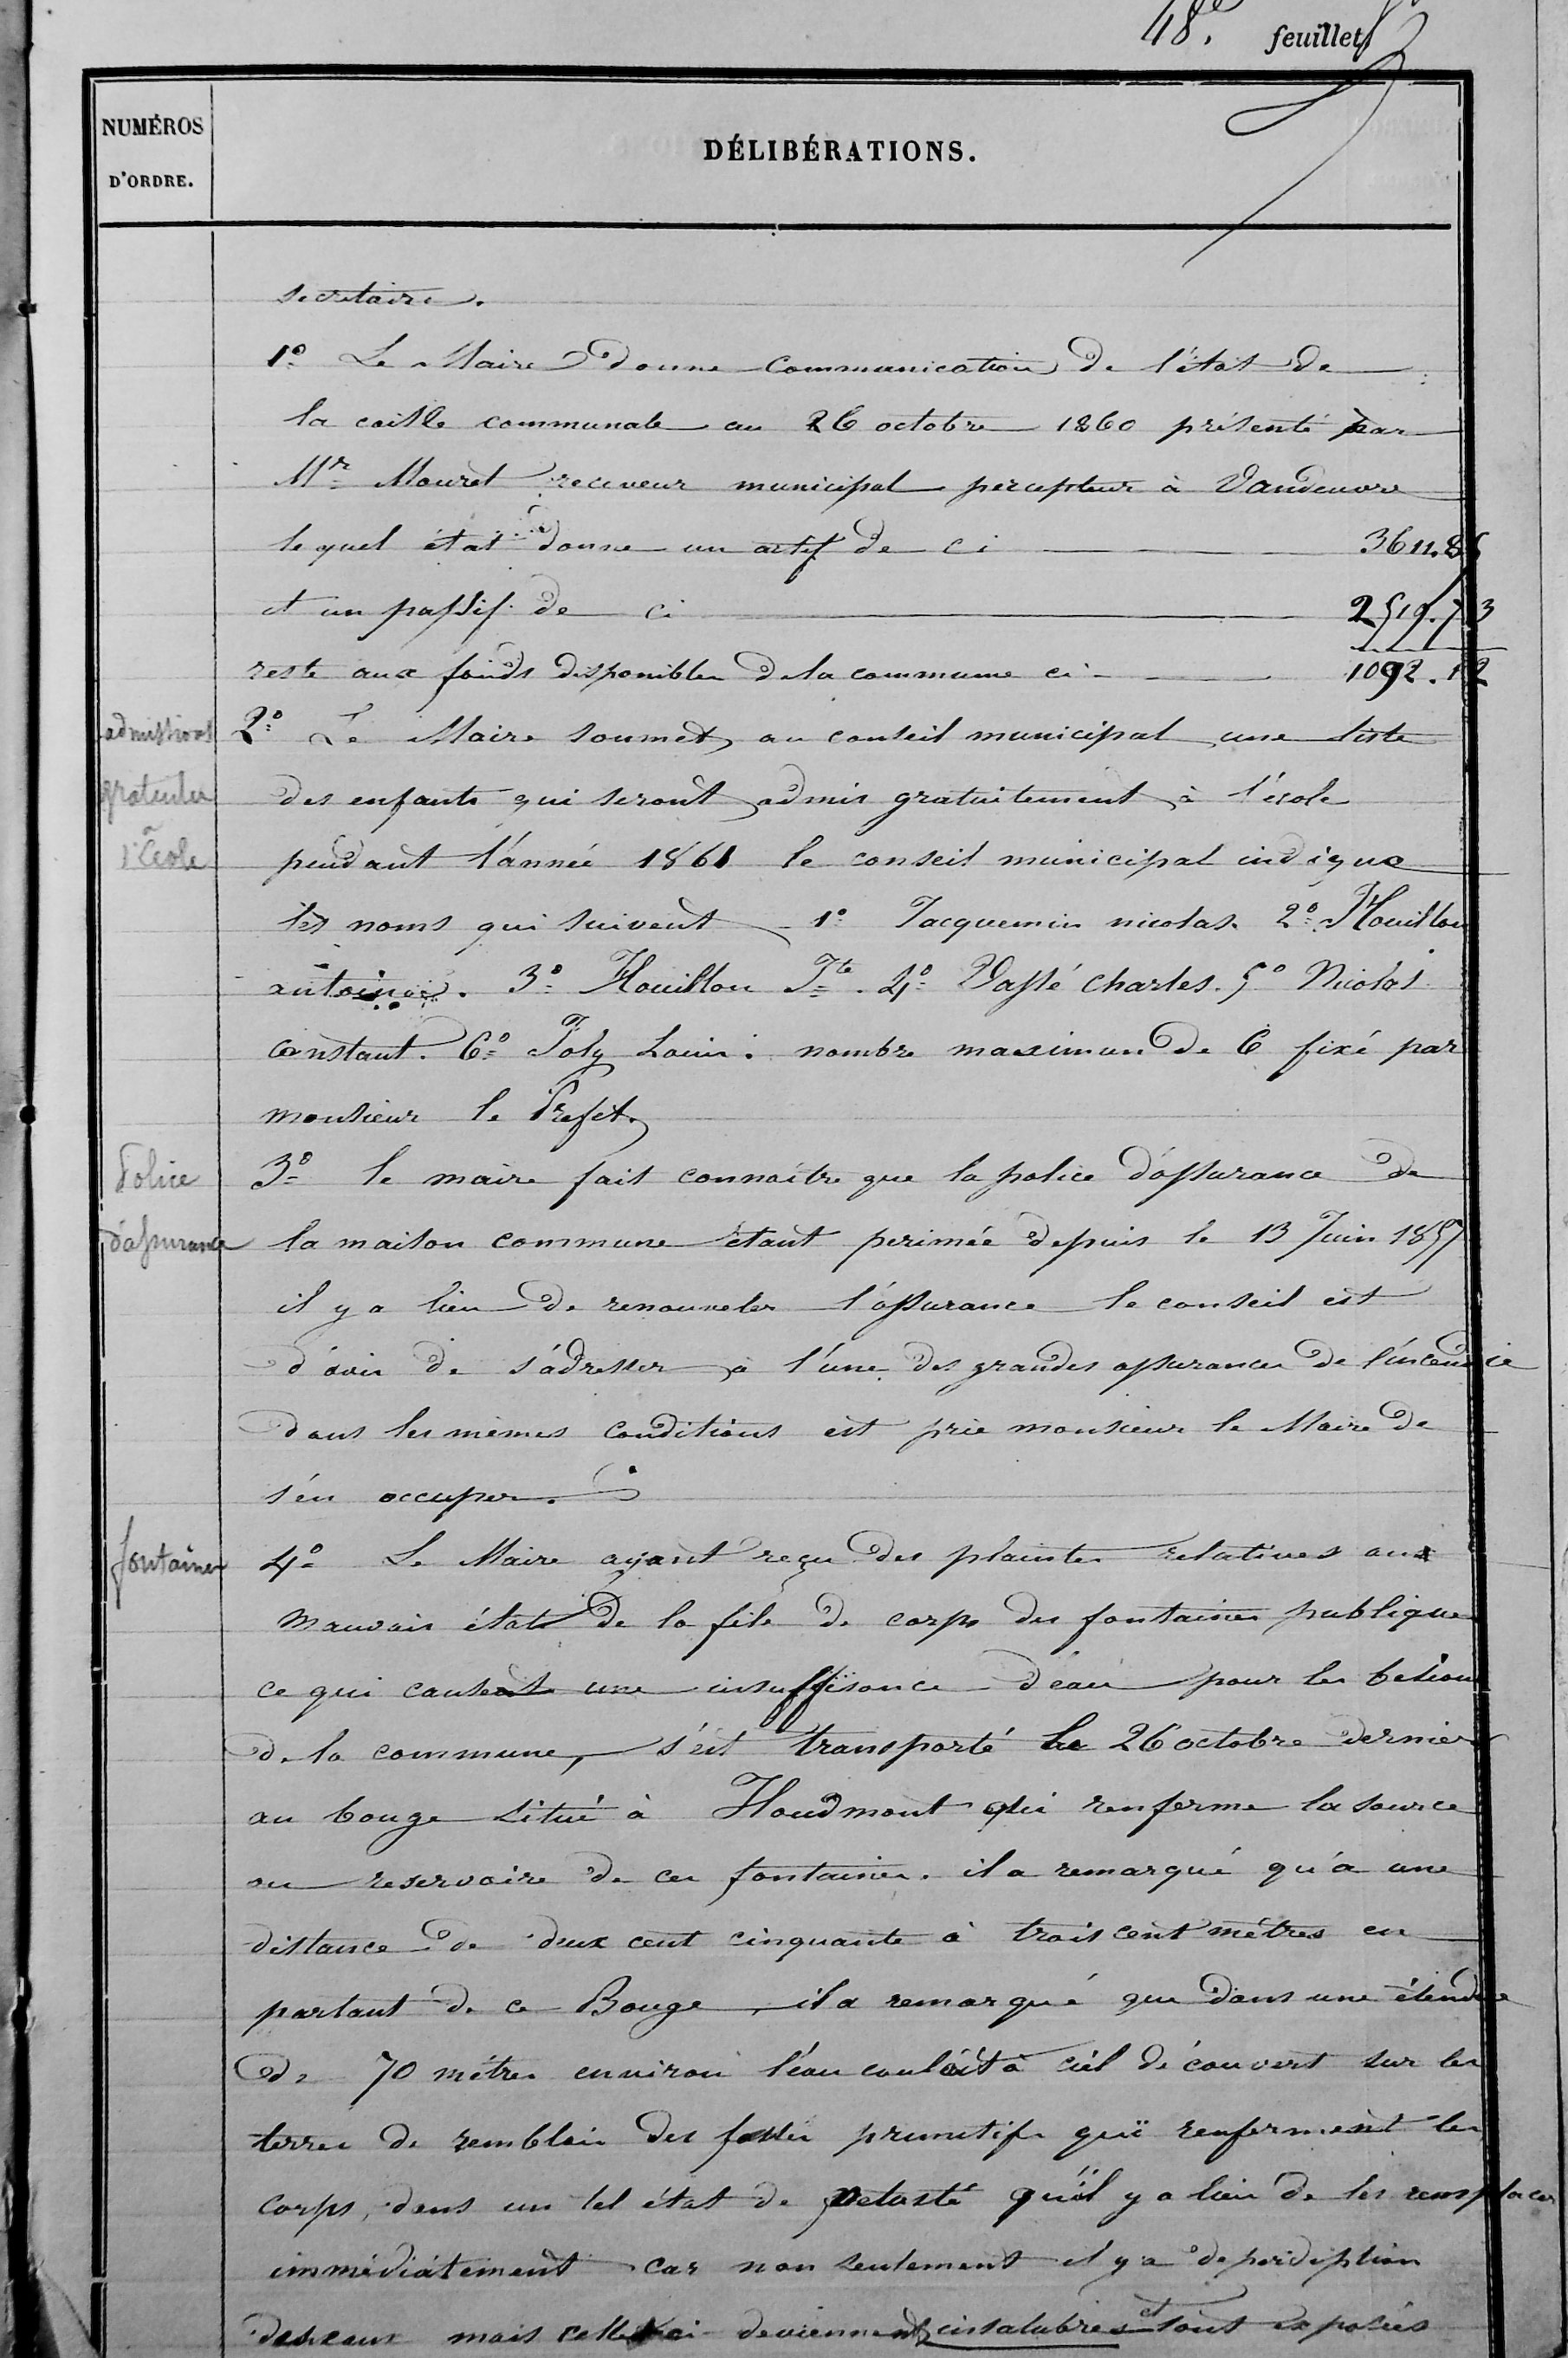 48e feuillet
NUMÉROS
D'ORDRE.
DÉLIBÉRATIONS.
secretaire.
1º Le Maire donne communication de l'état de
la caisse communale au 26 octobre 1860 présenté par
Mr Mouret receveur municipal percepteur à Vandeuvre
le quel état donne un actif de ci 3611.85
et un passif de ci 2519.73
reste aux fonds disponibles de la commune ci 1092.12
admissions
gratuites
à
l'école
2º Le Maire soumet au conseil municipal une liste
des enfants qui seront admis gratuitement à l'école
pendant l'année 1861 le conseil municipal indique
les noms qui suivent 1º Jacquemin nicolas. 2º Houillon
antoine. 3º Houillon Jte. 4º Vassé charles. 5º Nicolas
constant. 6º Joly Louis. nombre maximun de 6 fixé par
monsieur le Prefet.
Police
d'assurance
3º le maire fait connaitre que la police d'assurance de
la maison commune étant perimée depuis le 13 Juin 1857
il y a lieu de renouveler l'assurance le conseil est
d'avis de s'adresser à l'une des grandes assurances de l'incendie
dans les mêmes conditions est prie monsieur le Maire de
s'en occuper.
fontaines
4º Le Maire ayant reçu des plaintes relatives aux
mauvais état de la file de corps des fontaines publiques
ce qui causent une insuffisance d'eau pour les besions
de la commune, s'est transporté le 26 octobre dernier
au bouge situé à Houdmont qui renferme la source
ou reservoire de ces fontaines. il a remarqué qu'a une
distance de deux cent cinquante à trois cent mètres en
partant de ce Bouge, il a remarqué que dans une étendue
de 70 mètres environ l'eau coulait à ciel découvert sur les
terres de remblais des fossés primitifs qui renferment les
corps, dans un tel état de vetusté qu'il y a lieu de les remplacer
immédiatement car non seulement il y a deperdiption
des eaux mais celles ci deviennent insalubres et sont exposées